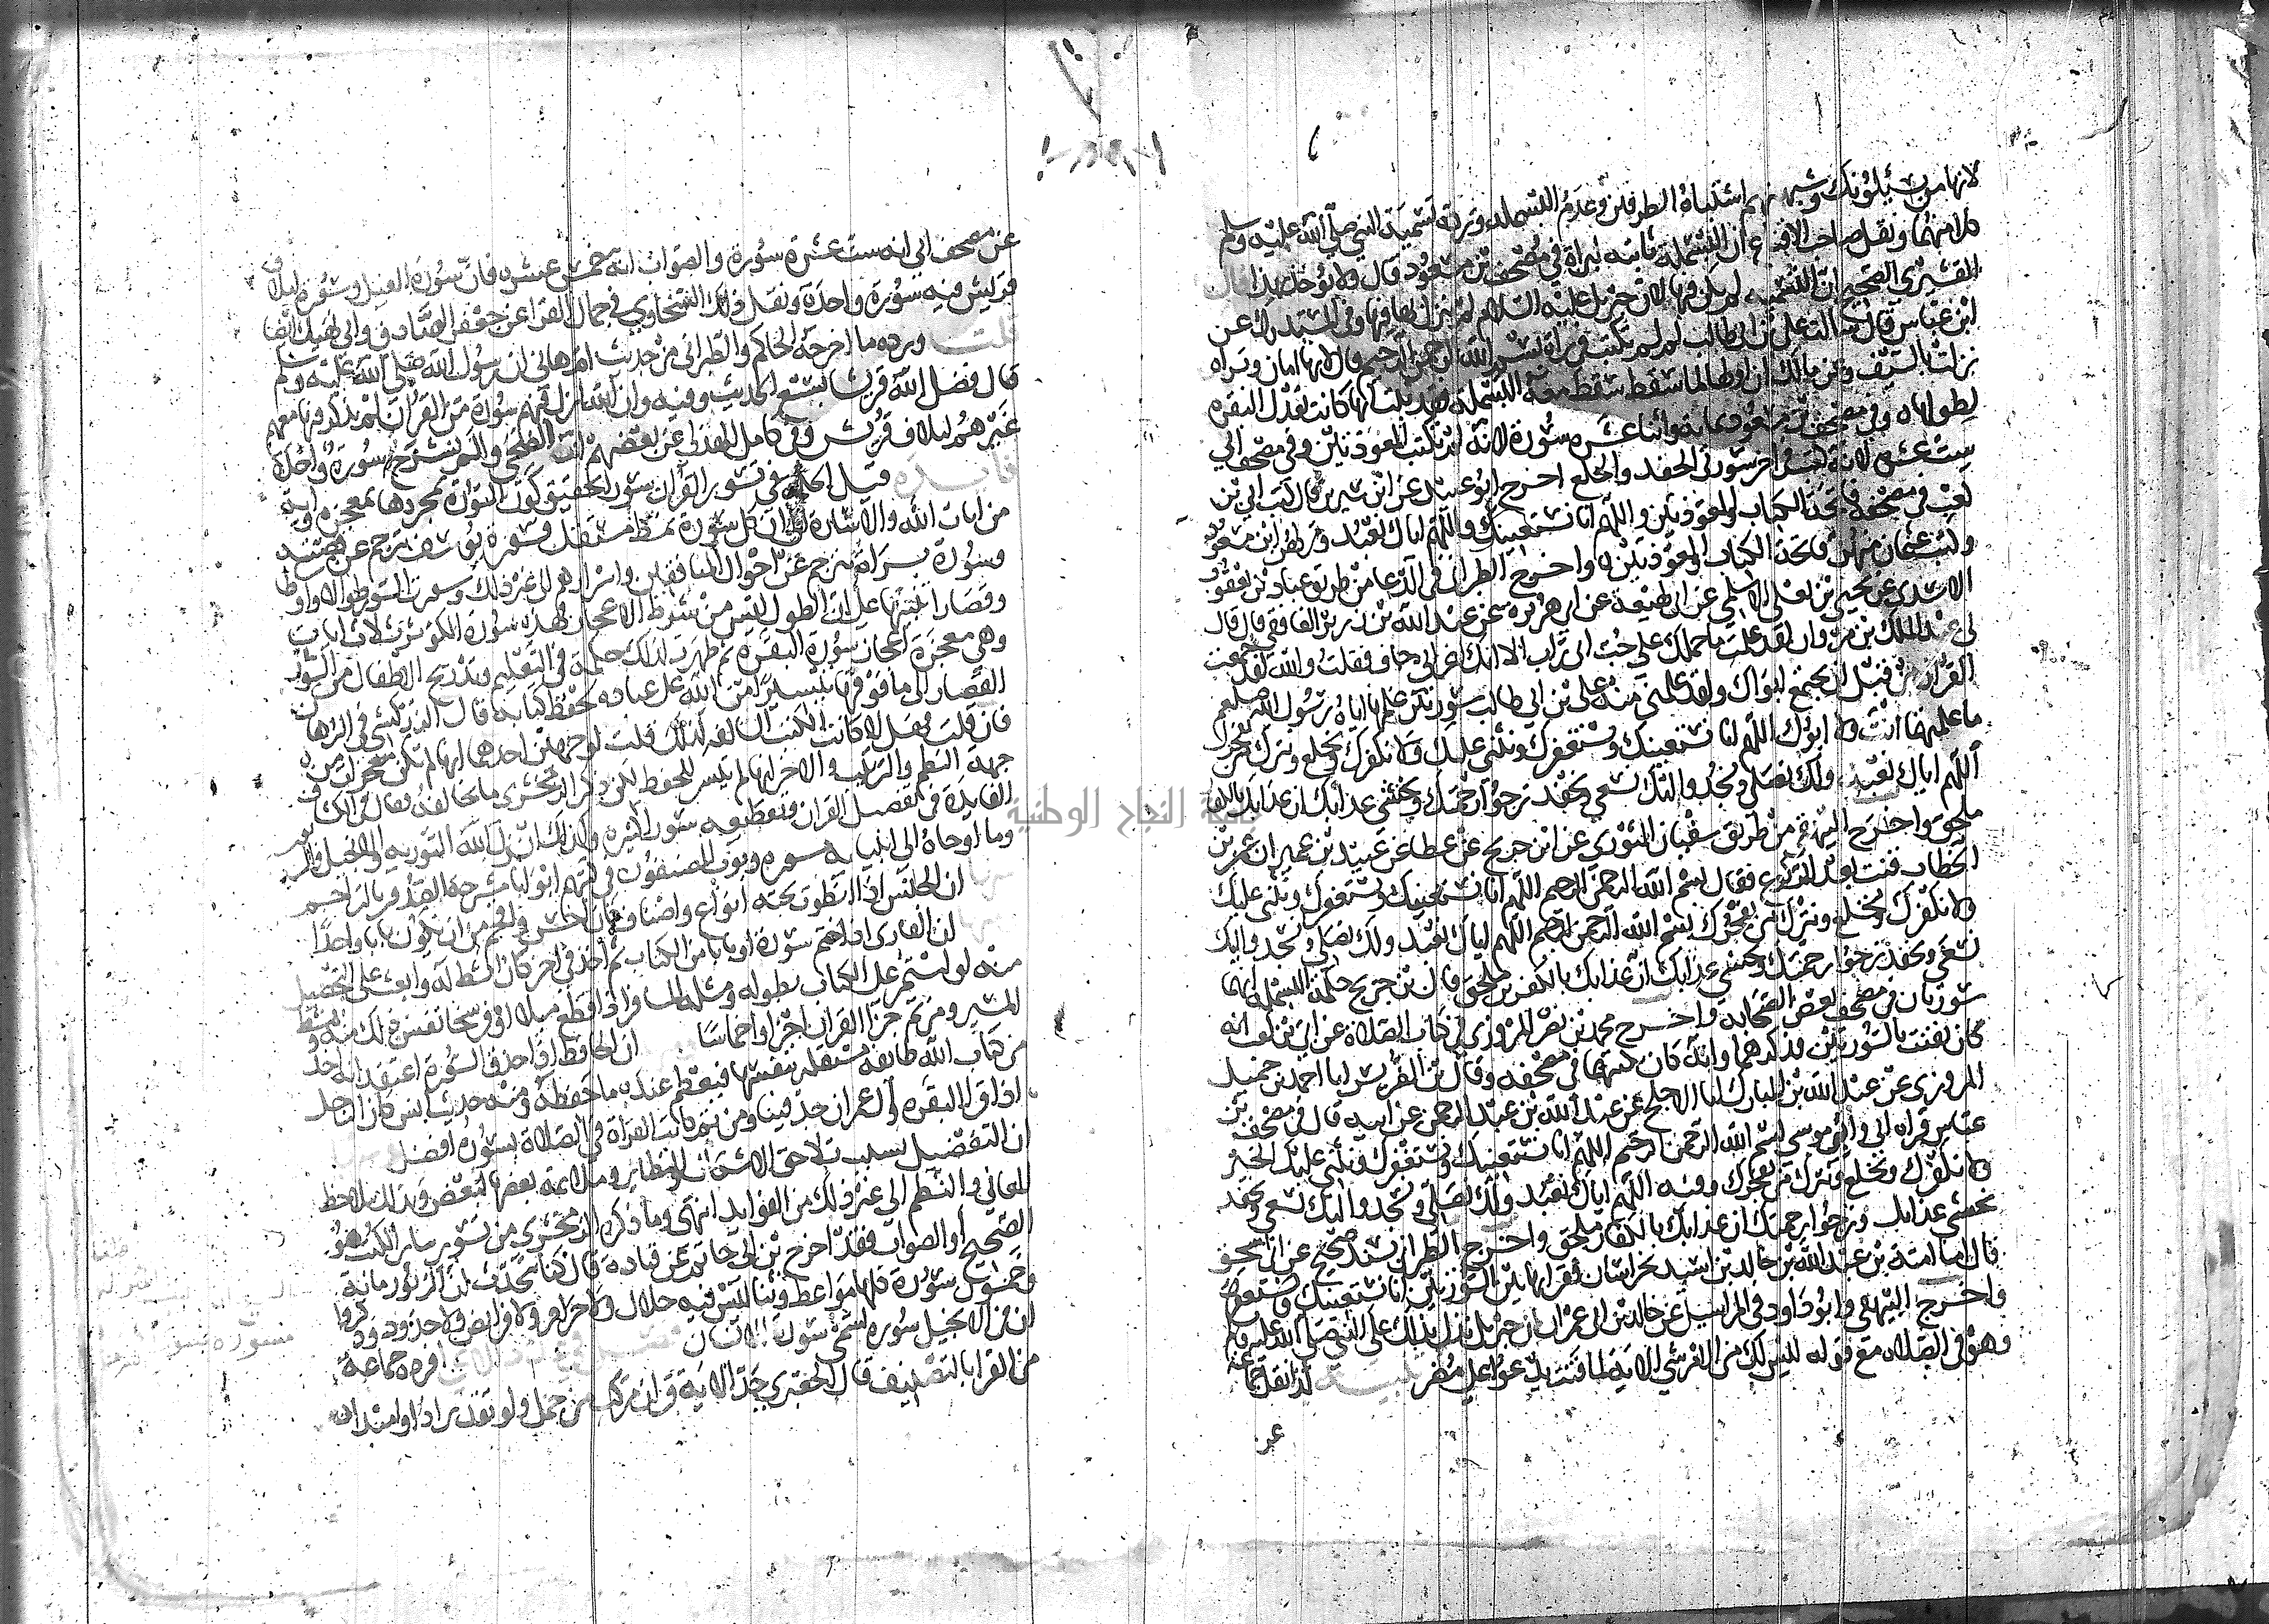 لانها من يسئلونك وشبهتهم اشتباه الطرفين وعدم البسملة ويرده تسمية النبي صلى الله عليه وسلم
كلا منهما ونقل صاحب الاقناع ان البسملة ثابته لبراة في مصحف بن مسعود قال ولا يؤخذ بهذا قال
القشيري الصحيح ان التسمية لم تكن فيها لان جبريل عليه السلام لم ينزل بها فيها وفي المستدرك عن
ابن عباس قال سالت علي بن ابي طالب لم لم تكتب في براة بسم الله الرحمن الرحيم قال لانها امان وبراه
نزلت بالسيف وعن مالك ان اولها لما سقط سقط معه البسملة فقد ثبت انها كانت تعدل البقره
لطولها وفي مصحف بن مسعود مايه واثنا عشره سورة لانه لم يكتب المعوذتين وفي مصحف ابي
ست عشره لانه كتب في اخره سورتي الحفد والخلع اخرج ابو عبيد عن ابن سيرين قال كتب ابي بن
كعب في مصحفه فاتحة الكتاب والمعوذتين واللهم انا نستعينك واللهم اياك نعبد وتركهن ابن مسعود
وكتب عثمان منهن فاتحة الكتاب والمعوذتين واخرج الطبراني في الدعا من طريق عباد بن يعقوب
الاسدي عن يحيى بن يعلى الاسلمي عن ابن لهيعة عن ابن هبيره عن عبد الله بن زرير الغافقي قال قال
لي عبد الملك بن مروان لقد علمت ما حملك على حب ابي تراب الا انك اعرابي جاف فقلت والله لقد جمعت
القران من قبل ان يجتمع ابواك ولقد علمني منه علي بن ابي طالب سورتين علمهما اياه رسول الله صلعم
ما علمتهما انت ولا ابوك اللهم انا نستعينك ونستغفرك ونثني عليك ولا نكفرك ونخلع ونترك من يفجرك
اللهم اياك نعبد ولك نصلي ونسجد واليك نسعى ونحفد نرجو رحمتك ونخشى عذابك ان عذابك بالكفار
ملحق واخرج البيهقي من طريق سفيان الثوري عن ابن جريج عن عطا عن عبيد بن عمير ان عمر بن
الخطاب قنت بعد الركوع فقال بسم الله الرحمن الرحيم اللهم انا نستعينك ونستغفرك ونثني عليك
ولا نكفرك ونخلع ونترك من يفجرك بسم الله الرحمن الرحيم اللهم اياك نعبد ولك نصلي ونسجد واليك
نسعى ونحفد نرجو رحمتك ونخشى عذابك ان عذابك بالكفرين ملحق قال بن جريج حكمة البسملة انهما
سورتان في مصحف بعض الصحابة واخرج محمد بن نصر المروزي في كتاب الصلاة عن ابي بن كعب انه
كان يقنت بالسورتين فذكرهما وانه كان يكتبهما في مصحفه وقال بن الضريس انبا احمد بن جميل
المروزي عن عبد الله بن المبارك انبا الاجلح عن عبد الله بن عبد الرحمن عن ابيه قال في مصحف بن
عباس قراه ابي وابي موسى بسم الله الرحمن الرحيم اللهم انا نستعينك ونستغفرك ونثني عليك الخير
ولا نكفرك ونخلع ونترك من يفجرك وفيه اللهم اياك نعبد ولك نصلي ونسجد واليك نسعى ونحفد
نخشى عذابك ونرجوا رحمتك ان عذابك بالكفار ملحق واخرج الطبراني بسند صحيح عن ابي اسحق
قال امنا امية بن عبد الله بن خالد بن اسيد بخراسان فقرا بهاتين السورتين انا نستعينك ونستغفرك
واخرج البيهقي وابو داود في المراسيل عن خالد بن ابي عمران ان جبريل نزل بذلك على النبي صلى الله عليه وسلم
وهو في الصلاه مع قوله ليس لك من الامر شي الاية لما قنت يدعوا على مضر تنبيه كذا نقل جماعة
عن
عن مصحف ابي انه ست عشرة سورة والصواب انه خمس عشره فان سورة الفيل وسورة لايلاف
قريش فيه سورة واحدة ونقل ذلك السخاوي في جمال القرا عن جعفر الصادق وابي نهيك ايضا
قلت ويرده ما اخرجه الحاكم والطبراني من حديث ام هاني ان رسول الله صلى الله عليه وسلم
قال فضل الله قريشا بسبع الحديث وفيه وان الله انزل فيهم سورة من القران لم يذكر فيها معهم
غيرهم لايلاف قريش وفي كامل الهذلي عن بعضهم انه قال الضحى والم نشرح سورة واحدة
فايده قيل الحكمة في تسوير القران سورا تحقيق كون السورة بمجردها معجزة واية
من ايات الله والاشارة الى ان كل سورة نمط مستقل فسورة يوسف تترجم عن قصته
وسورة براة تترجم عن احوال المنافقين واسرارهم الى غير ذلك وسورت السور طوالا واوساطا
وقصارا تنبيها على ان الطول ليس من شرط الاعجاز فهذه سورة الكوثر ثلاث ايات
وهي معجزة اعجاز سورة البقرة ثم ظهرت لذلك حكمة في التعليم وتدريج الاطفال من السور
القصار الى ما فوقها تيسيرا من الله على عباده لحفظ كتابه قال الزركشي في البرهان
فان قلت فهلا كانت الكتب السالفه كذلك قلت لوجهين احدهما انها لم تكن معجزات من
جهة النظم والترتيب والاخر انها لم تيسر للحفظ لكن ذكر الزمخشري ما يخالفه فقال في الكشاف
الفايدة في تفصيل القران وتقطيعه سورا كثيرة وكذلك انزل الله التوريه والانجيل والزبور
وما اوحاه الى انبيايه مسوره وبوب المصنفون في كتبهم ابوابا مشرحة الصدور بالتراجم
منها ان الجنس اذا انطوت تحته انواع واصناف كان احسن وافخم من ان يكون بابا واحدا
ومنها ان القارى اذا ختم سورة او بابا من الكتاب ثم اخذ في اخر كان انشط له وابعث على التحصيل
منه لو استمر على الكتاب بطوله ومثله المسافر اذا قطع ميلا او فرسخا نفس ذلك منه ونشط
للسير ومن ثم جزا القران اجزا واخماسا ان الحافظ اذا حذق السورة اعتقد انه اخذ
من كتاب الله طايفه مستقله بنفسها فيعظم عنده ما حفظه ومنه حديث انس كان الرجل
اذا قرا البقره وال عمران جد فينا ومن ثم كانت القراة في الصلاة بسورة افضل
ان التفصيل بسبب تلاحق الاشكال والنظاير وملايمة بعضها لبعض وبذلك تلاحظ
المعاني والنظم الى غير ذلك من الفوايد انتهى وما ذكره الزمخشري من تسوير ساير الكتب هو
الصحيح او الصواب فقد اخرج بن ابي حاتم عن قتادة قال كنا نتحدث ان الزبور مائة
وخمسون سورة كلها مواعظ وثنا ليس فيه حلال ولا حرام ولا فرايض ولا حدود وذكروا
ان في الانجيل سورة تسمى سورة الامثال فصل في عد الاي افرده جماعة
من القرا بالتصنيف قال الجعبري حد الاية قران مركب من جمل ولو تقديرا ذو مبدا
جامعة النجاح الوطنية